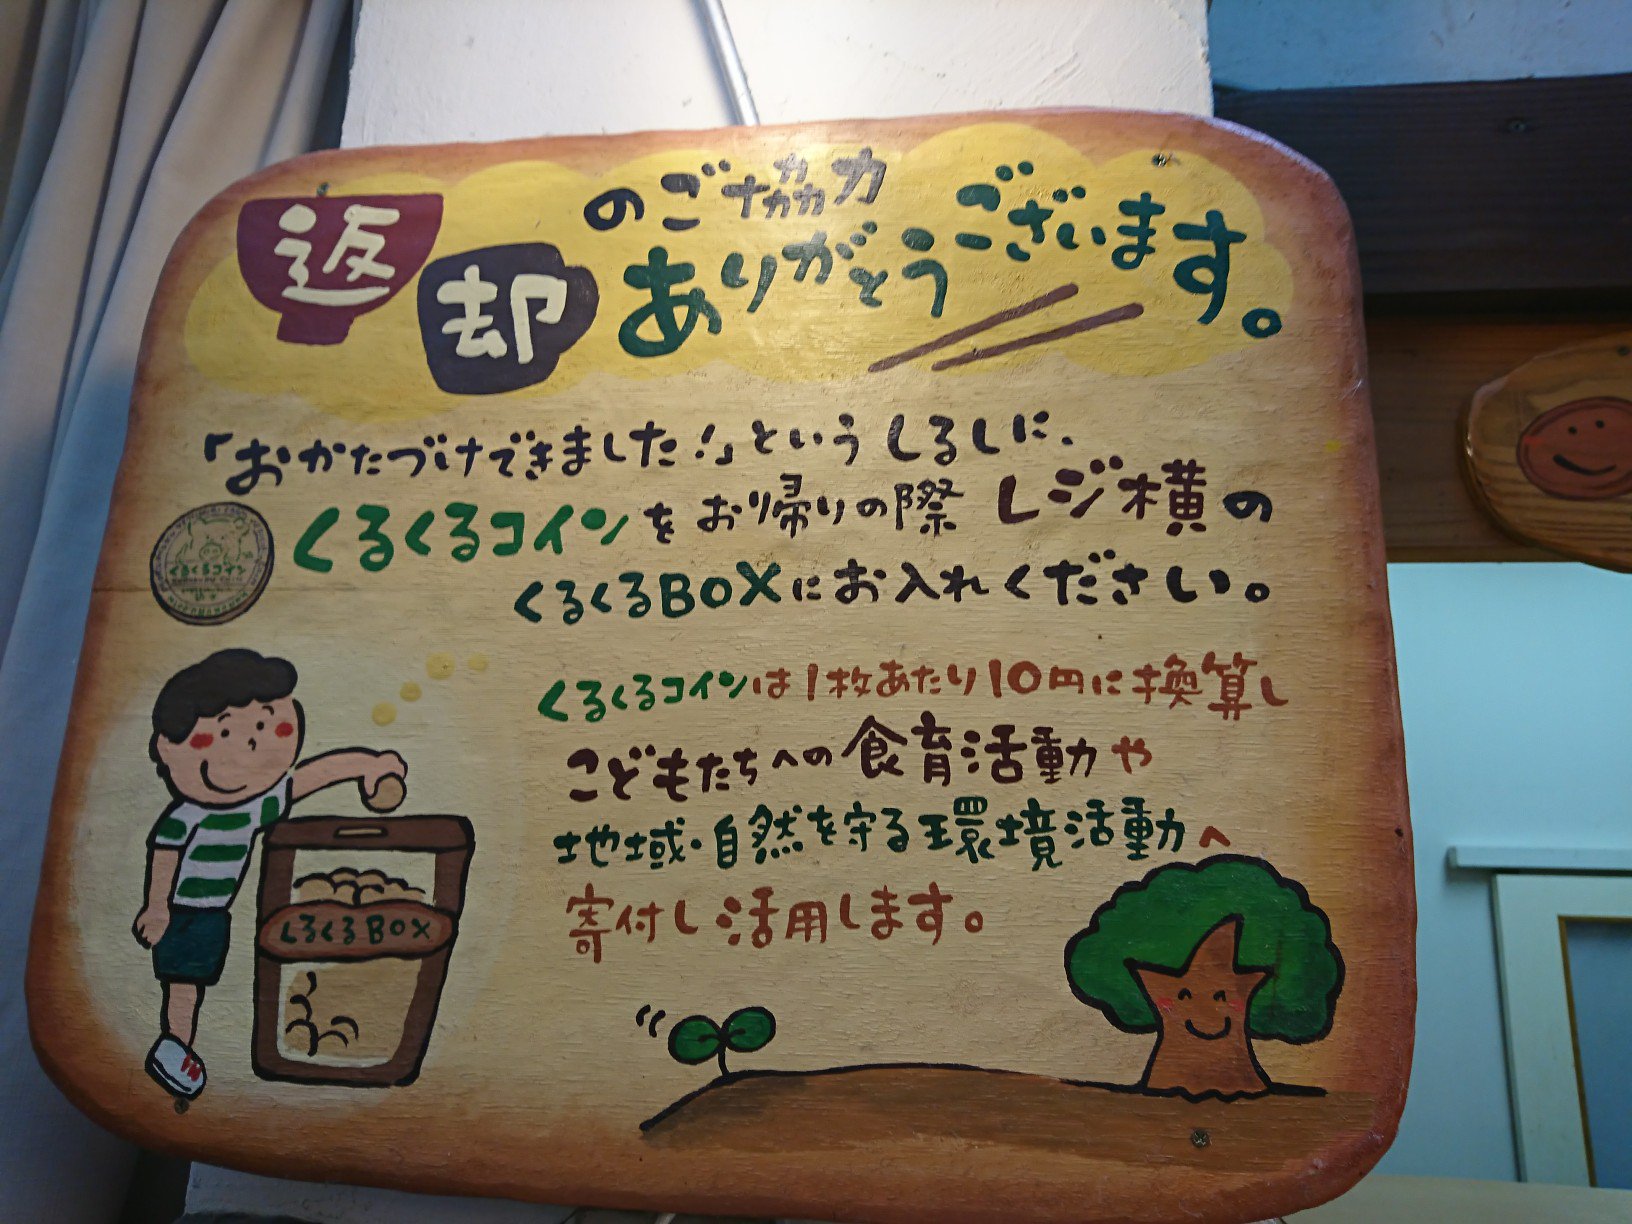 返却のご協力
ありがとうございます。
「おかたづけできました!」という しるしに、
くるくるコインをお帰りの際 レジ横の
くるくるBOXにお入れください。
くるくるコイン
くるくるコインは1枚あたり10円に換算し
こどもたちへの食育活動や
地域・自然を守る環境活動へ
寄付し活用します。
くるくるBOX